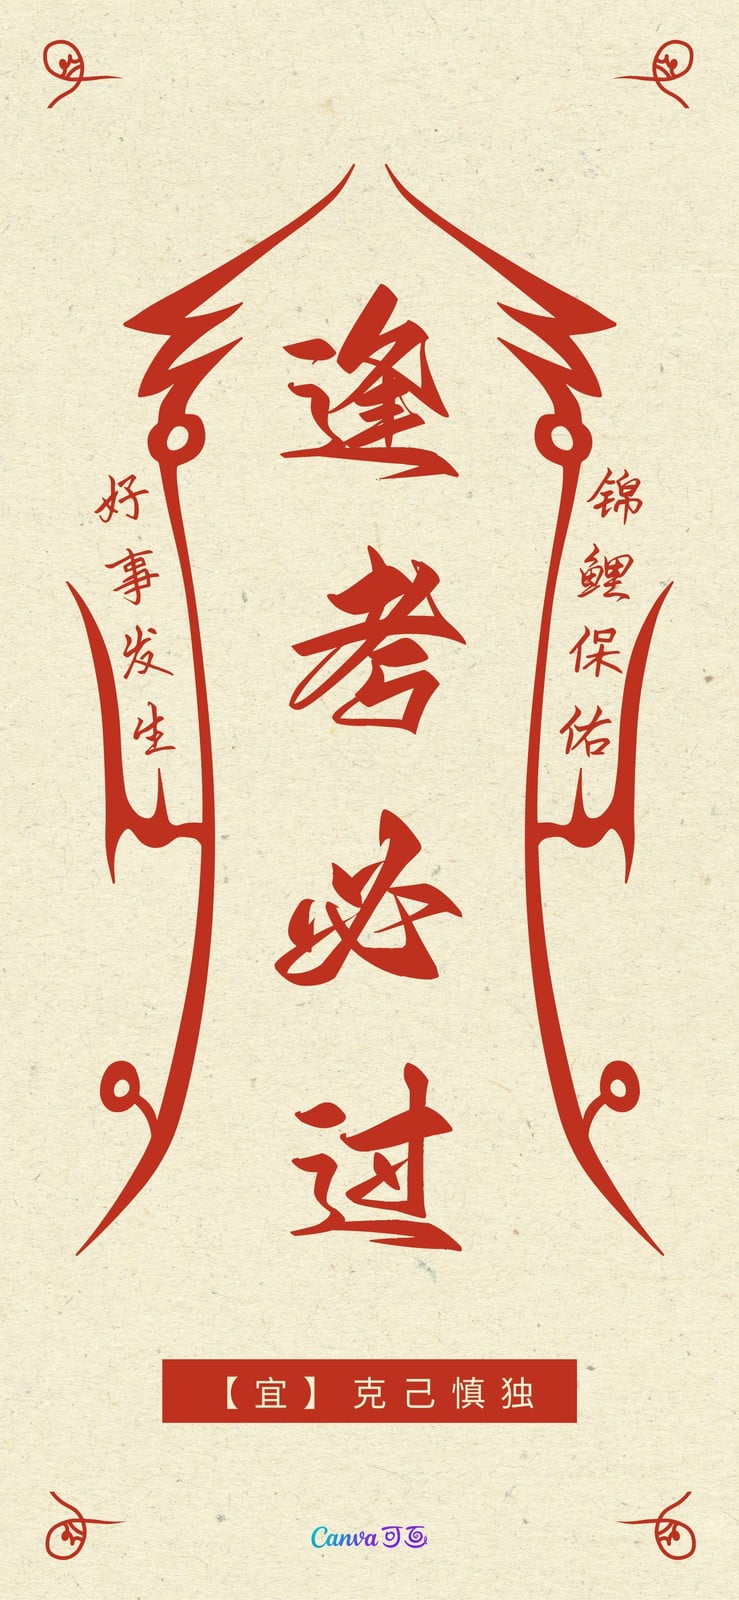 逢考必过
锦鲤保佑
好事发生
【宜】克己慎独
Canva可画